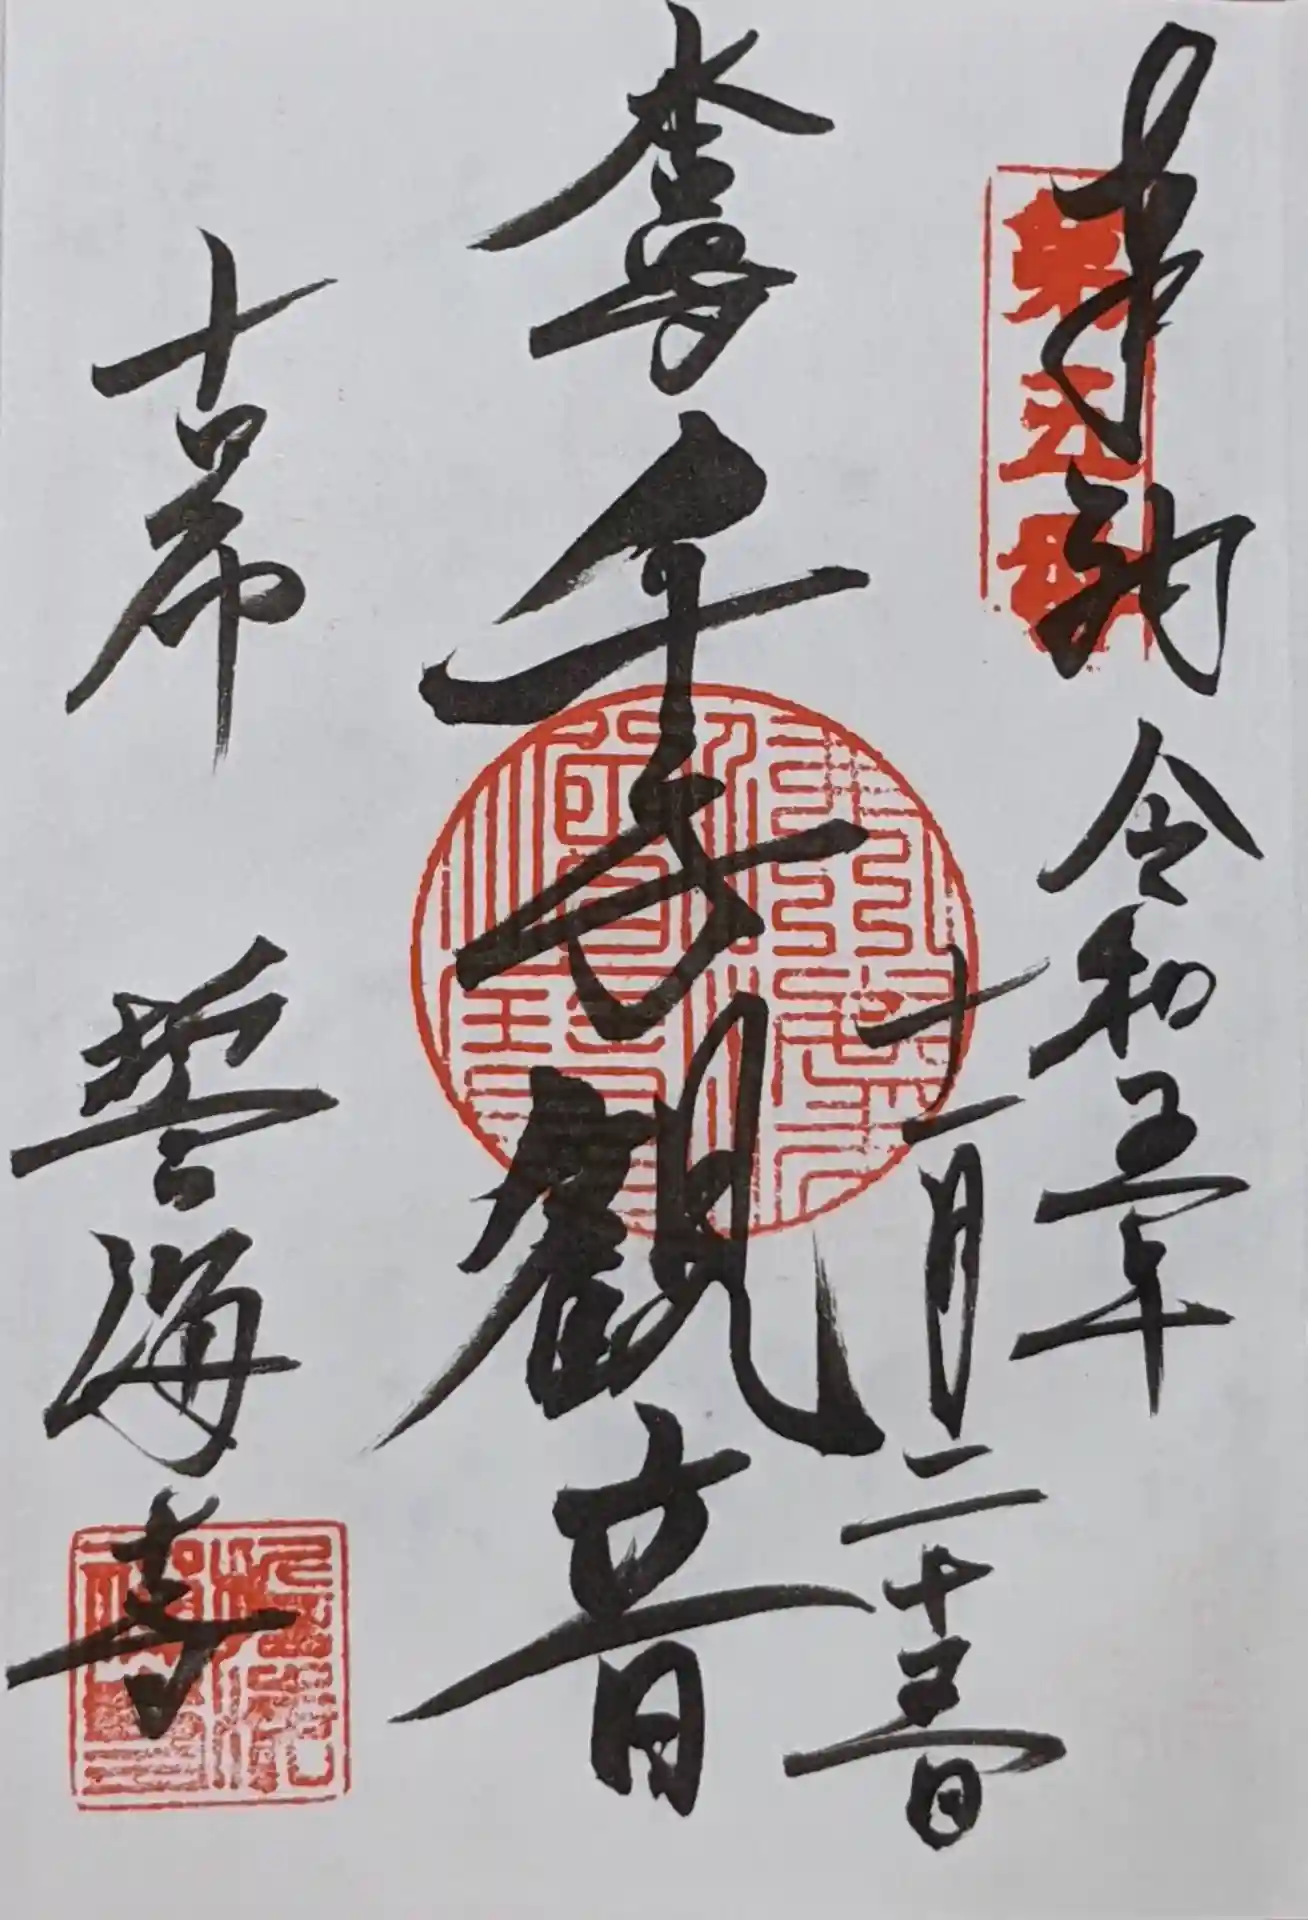 第五番
奉納 令和五年
十一月二十五日
本尊 千手観音
古布 誓海寺